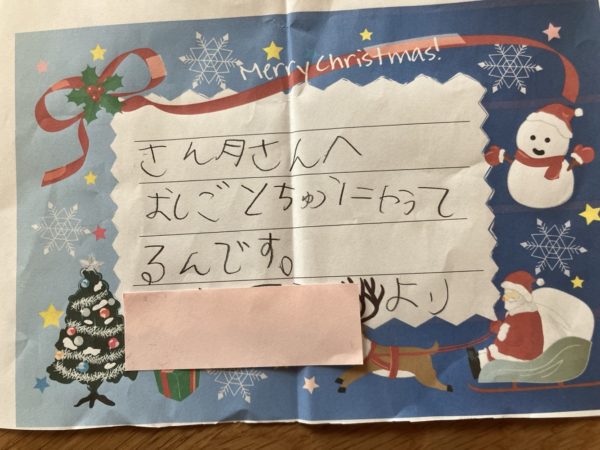 Merry Christmas!
さん月さんへ
おしごとちゅうに
るんです。
より